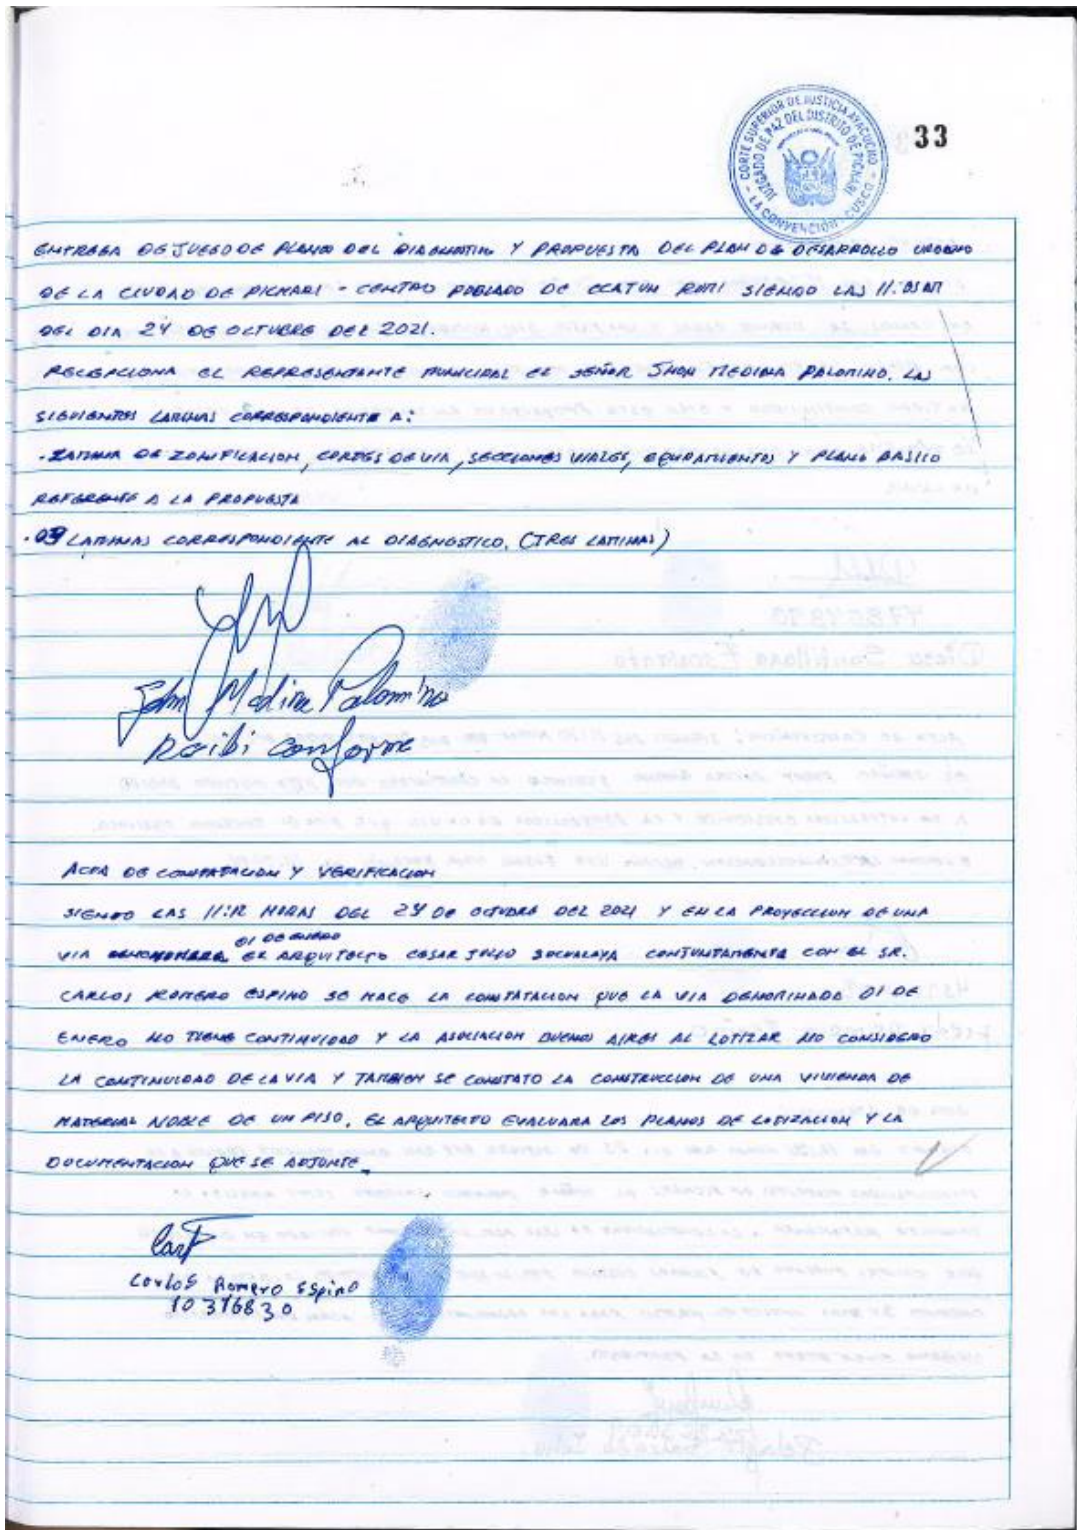 CORTE SUPERIOR DE JUSTICIA AYACUCHO
JUZGADO DE PAZ DEL DISTRITO DE PICHARI
- LA CONVENCIÓN - CUSCO -
33
ENTREGA DE JUEGO DE PLANO DEL DIAGNOSTICO Y PROPUESTA DEL PLAN DE DESARROLLO URBANO
DE LA CIUDAD DE PICHARI - CENTRO POBLADO DE CCATUN RUMI SIENDO LAS 11:05AM
DEL DIA 24 DE OCTUBRE DEL 2021.
RECEPCIONA EL REPRESENTANTE MUNICIPAL EL SEÑOR JHON MEDINA PALOMINO. LAS
SIGUIENTES LAMINAS CORRESPONDIENTE A:
- LAMINA DE ZONIFICACION, CORTES DE VIA, SECCIONES VIALES, EQUIPAMIENTOS Y PLANO BASICO
REFERENTE A LA PROPUESTA
. 03 LAMINAS CORRESPONDIENTE AL DIAGNOSTICO, (TRES LAMINAS)
John Medina Palomino
Recibi conforme
ACTA DE CONSTATACION Y VERIFICACION
SIENDO LAS 11:12 HORAS DEL 24 DE OCTUBRE DEL 2021 Y EN LA PROYECCION DE UNA
01 DE ENERO
VIA EL ARQUITECTO CESAR JULIO SOCUALAYA CONJUNTAMENTE CON EL SR.
CARLOS ROMERO ESPINO SE HACE LA CONSTATACION QUE LA VIA DENOMINADO 01 DE
ENERO NO TIENE CONTINUIDAD Y LA ASOCIACION BUENOS AIRES AL LOTIZAR NO CONSIDERO
LA CONTINUIDAD DE LA VIA Y TAMBIEN SE CONSTATO LA CONSTRUCCION DE UNA VIVIENDA DE
MATERIAL NOBLE DE UN PISO, EL ARQUITECTO EVALUARA LOS PLANOS DE LOTIZACION Y LA
DOCUMENTACION QUE SE ADJUNTE.
Carlos Romero Espino
10316830